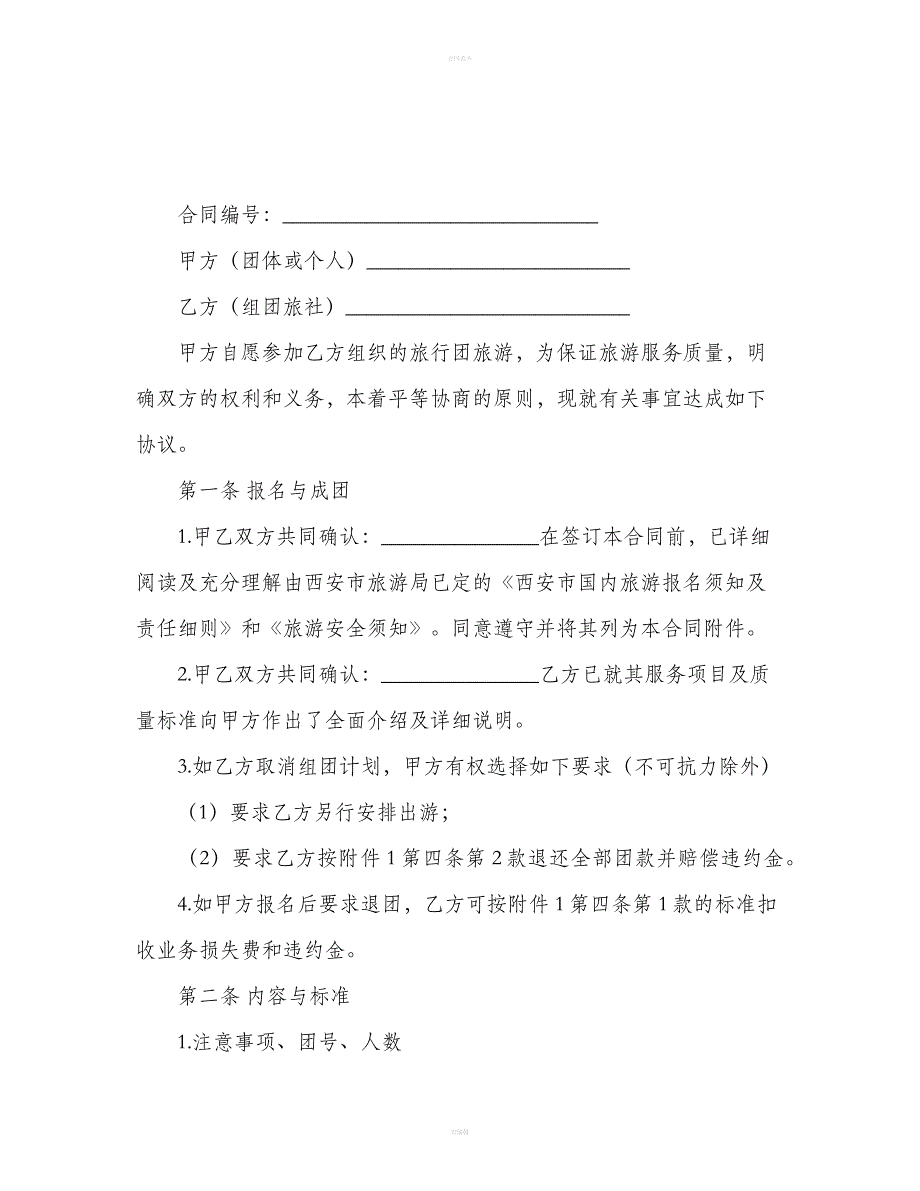 合同编号：______________________________
甲方（团体或个人）_________________________
乙方（组团旅社）___________________________
甲方自愿参加乙方组织的旅行团旅游，为保证旅游服务质量，明
确双方的权利和义务，本着平等协商的原则，现就有关事宜达成如下
协议。
第一条 报名与成团
1.甲乙双方共同确认：_______________在签订本合同前，已详细
阅读及充分理解由西安市旅游局已定的《西安市国内旅游报名须知及
责任细则》和《旅游安全须知》。同意遵守并将其列为本合同附件。
2.甲乙双方共同确认：_______________乙方已就其服务项目及质
量标准向甲方作出了全面介绍及详细说明。
3.如乙方取消组团计划，甲方有权选择如下要求（不可抗力除外）
（1）要求乙方另行安排出游；
（2）要求乙方按附件 1 第四条第 2 款退还全部团款并赔偿违约金。
4.如甲方报名后要求退团，乙方可按附件 1 第四条第 1 款的标准扣
收业务损失费和违约金。
第二条 内容与标准
1.注意事项、团号、人数